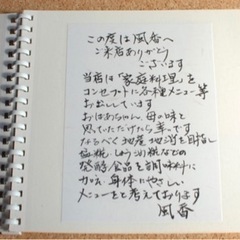 この度は風香へ
ご来店ありがとう
ございます
当店は「家庭料理」を
コンセプトに各種メニュー等
お出ししています
おばあちゃん、母の味と
思っていただけたら幸です
なるべく地産地消を目指し
塩糀、しょう油糀などの
発酵食品を調味料に
加え、身体にやさしい
メニューをと考えております
風香